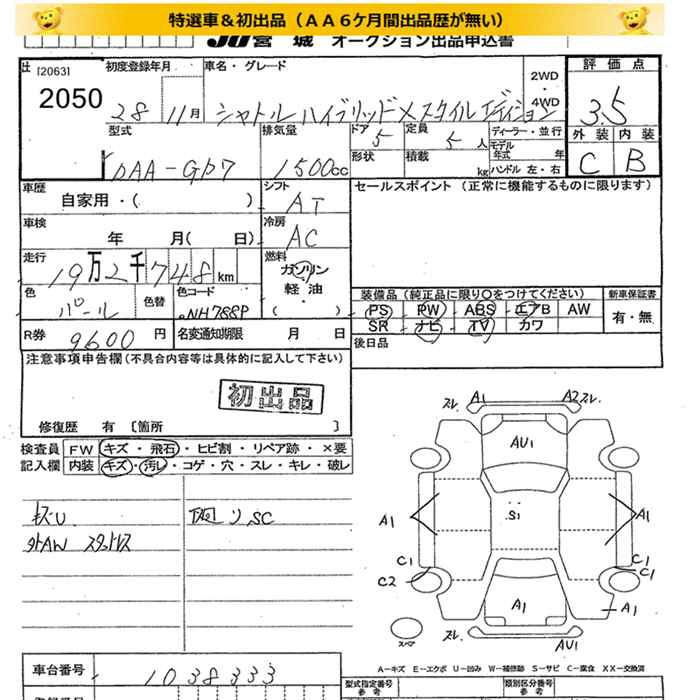 特選車＆初出品（ＡＡ６ケ月間出品歴が無い）
JU宮城 オークション出品申込書
[2063]
2050
初度登録年月
28 11月
車名・グレード
シャトル ハイブリッドX スタイル エディション
2WD
・
4WD
評価点
3.5
外装 内装
C B
型式
DAA-GP7
排気量
1500cc
ドア 5
定員 5人
ディーラー・並行
形状
積載 kg
モデル年式 年
ハンドル 左・右
車歴
自家用・( )
シフト
AT
セールスポイント (正常に機能するものに限ります)
車検
年 月( 日)
冷房
AC
走行
19万2千748km
燃料
ガソリン
軽・油
( )
色
パール
色替
色コード
NH788P
装備品 (純正品に限り〇をつけてください)
新車保証書
PS PW ABS エアB AW
有・無
SR ナビ TV カワ
R券
9600円
名変通知期限 月 日
後日品
注意事項申告欄(不具合内容等は具体的に記入して下さい)
初出品
修復歴 有 [箇所 ]
検査員記入欄
FW キズ・飛石・ヒビ割・リペア跡・×要
内装 キズ・汚レ・コゲ・穴・スレ・キレ・破レ
キズU
外AW スタットレス
下廻リSC
スレ A1 A2 スレ
AU1
A1
S1
A1
C1
C2
C1
C1
A1
A1
スペア
スレ AU1
A－キズ E－エクボ U－凹み W－補修跡 S－サビ C－腐食 XX－交換済
車台番号
1038333
型式指定番号
参考
類別区分番号
参考